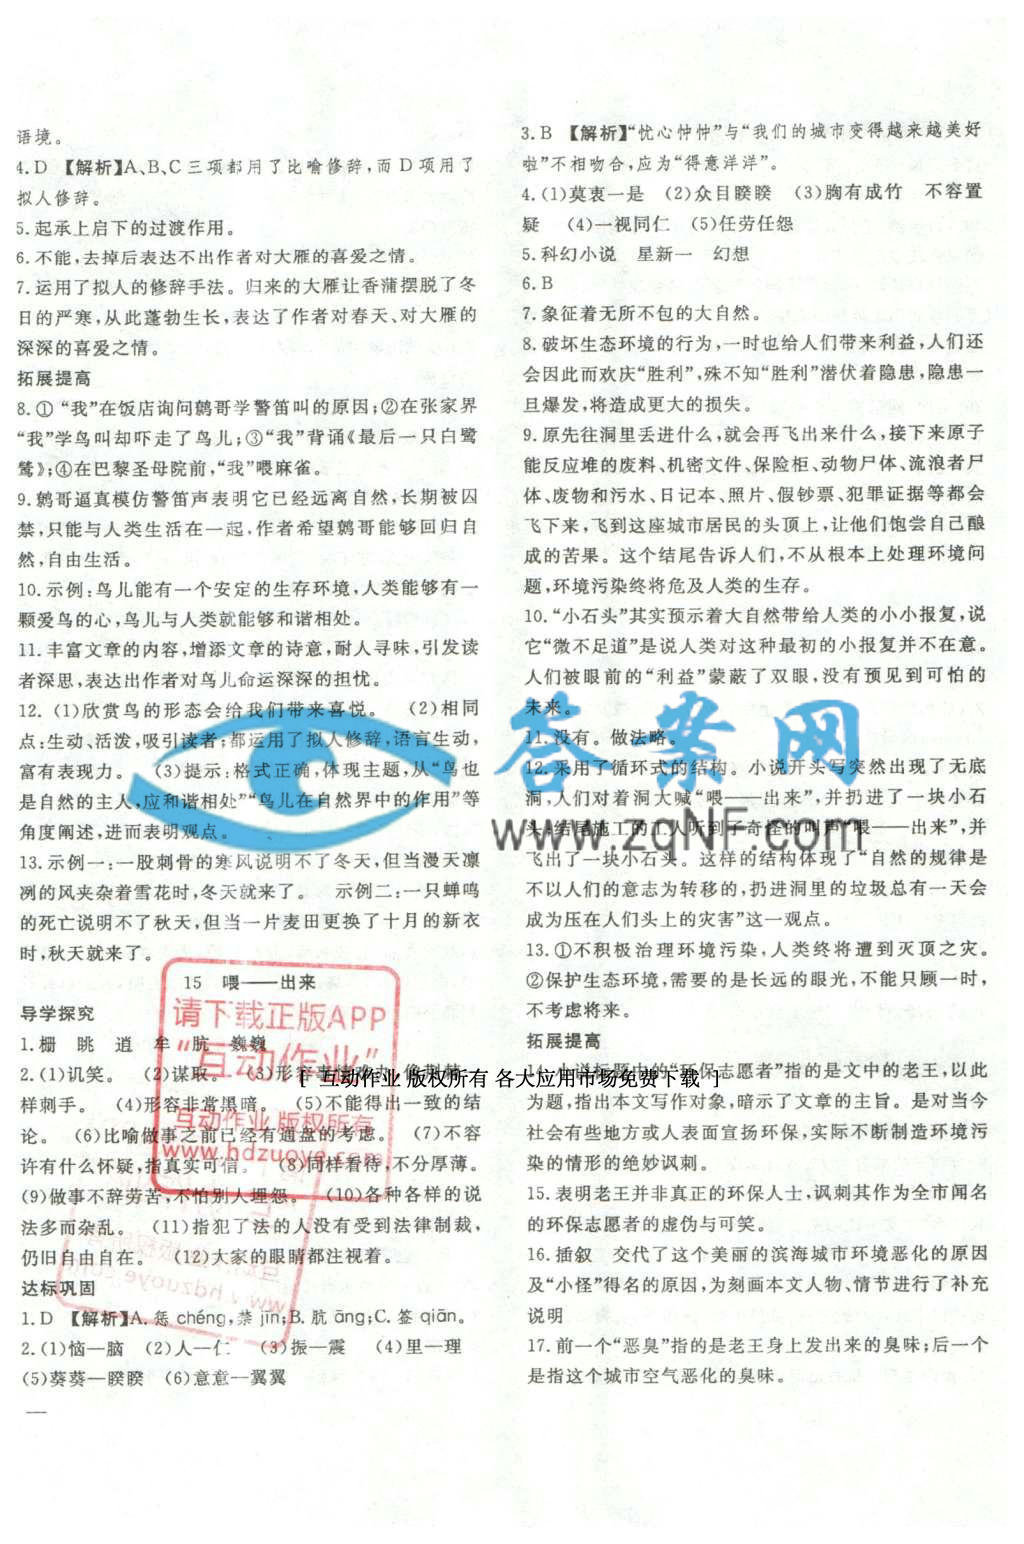 语境。
4.D 【解析】A、B、C三项都用了比喻修辞,而D项用了
拟人修辞。
5.起承上启下的过渡作用。
6.不能,去掉后表达不出作者对大雁的喜爱之情。
7.运用了拟人的修辞手法。归来的大雁让香蒲摆脱了冬
日的严寒,从此蓬勃生长,表达了作者对春天、对大雁的
深深的喜爱之情。
拓展提高
8.①“我”在饭店询问鹩哥学警笛叫的原因;②在张家界
“我”学鸟叫却吓走了鸟儿;③“我”背诵《最后一只白鹭
鸶》;④在巴黎圣母院前,“我”喂麻雀。
9.鹩哥逼真模仿警笛声表明它已经远离自然,长期被囚
禁,只能与人类生活在一起,作者希望鹩哥能够回归自
然,自由生活。
10.示例:鸟儿能有一个安定的生存环境,人类能够有一
颗爱鸟的心,鸟儿与人类就能够和谐相处。
11.丰富文章的内容,增添文章的诗意,耐人寻味,引发读
者深思,表达出作者对鸟儿命运深深的担忧。
12.(1)欣赏鸟的形态会给我们带来喜悦。 (2)相同
点:生动、活泼,吸引读者;都运用了拟人修辞,语言生动,
富有表现力。 (3)提示:格式正确,体现主题,从“鸟也
是自然的主人,应和谐相处”“鸟儿在自然界中的作用”等
角度阐述,进而表明观点。
13.示例一:一股刺骨的寒风说明不了冬天,但当漫天凛
冽的风夹杂着雪花时,冬天就来了。 示例二:一只蝉鸣
的死亡说明不了秋天,但当一片麦田更换了十月的新衣
时,秋天就来了。
15 喂——出来
导学探究
1.栅 眺 逍 牟 肮 巍巍
2.(1)讥笑。 (2)谋取。 (3)形容事情难办,像荆棘一
样刺手。 (4)形容非常黑暗。 (5)不能得出一致的结
论。 (6)比喻做事之前已经有通盘的考虑。 (7)不容
许有什么怀疑,指真实可信。 (8)同样看待,不分厚薄。
(9)做事不辞劳苦,不怕别人埋怨。 (10)各种各样的说
法多而杂乱。 (11)指犯了法的人没有受到法律制裁,
仍旧自由自在。 (12)大家的眼睛都注视着。
达标巩固
1.D 【解析】A.惩 chéng,禁 jīn;B.肮 āng;C.签 qiān。
2.(1)恼—脑 (2)人—仁 (3)振—震 (4)里—理
(5)葵葵—睽睽 (6)意意—翼翼
3.B 【解析】“忧心忡忡”与“我们的城市变得越来越美好
啦”不相吻合,应为“得意洋洋”。
4.(1)莫衷一是 (2)众目睽睽 (3)胸有成竹 不容置
疑 (4)一视同仁 (5)任劳任怨
5.科幻小说 星新一 幻想
6.B
7.象征着无所不包的大自然。
8.破坏生态环境的行为,一时也给人们带来利益,人们还
会因此而欢庆“胜利”,殊不知“胜利”潜伏着隐患,隐患一
旦爆发,将造成更大的损失。
9.原先往洞里丢进什么,就会再飞出来什么,接下来原子
能反应堆的废料、机密文件、保险柜、动物尸体、流浪者尸
体、废物和污水、日记本、照片、假钞票、犯罪证据等都会
飞下来,飞到这座城市居民的头顶上,让他们饱尝自己酿
成的苦果。这个结尾告诉人们,不从根本上处理环境问
题,环境污染终将危及人类的生存。
10.“小石头”其实预示着大自然带给人类的小小报复,说
它“微不足道”是说人类对这种最初的小报复并不在意。
人们被眼前的“利益”蒙蔽了双眼,没有预见到可怕的
未来。
11.没有。做法略。
12.采用了循环式的结构。小说开头写突然出现了无底
洞,人们对着洞大喊“喂——出来”,并扔进了一块小石
头,结尾施工的工人听到了奇怪的叫声“喂——出来”,并
飞出了一块小石头。这样的结构体现了“自然的规律是
不以人们的意志为转移的,扔进洞里的垃圾总有一天会
成为压在人们头上的灾害”这一观点。
13.①不积极治理环境污染,人类终将遭到灭顶之灾。
②保护生态环境,需要的是长远的眼光,不能只顾一时,
不考虑将来。
拓展提高
14.小说标题中的“环保志愿者”指的是文中的老王,以此
为题,指出本文写作对象,暗示了文章的主旨。是对当今
社会有些地方或人表面宣扬环保,实际不断制造环境污
染的情形的绝妙讽刺。
15.表明老王并非真正的环保人士,讽刺其作为全市闻名
的环保志愿者的虚伪与可笑。
16.插叙 交代了这个美丽的滨海城市环境恶化的原因
及“小怪”得名的原因,为刻画本文人物、情节进行了补充
说明
17.前一个“恶臭”指的是老王身上发出来的臭味;后一个
是指这个城市空气恶化的臭味。
答案网
www.zqNF.com
请下载正版APP
“互动作业”
互动作业 版权所有
www.hdzuoye.com
[ 互动作业 版权所有 各大应用市场免费下载 ]